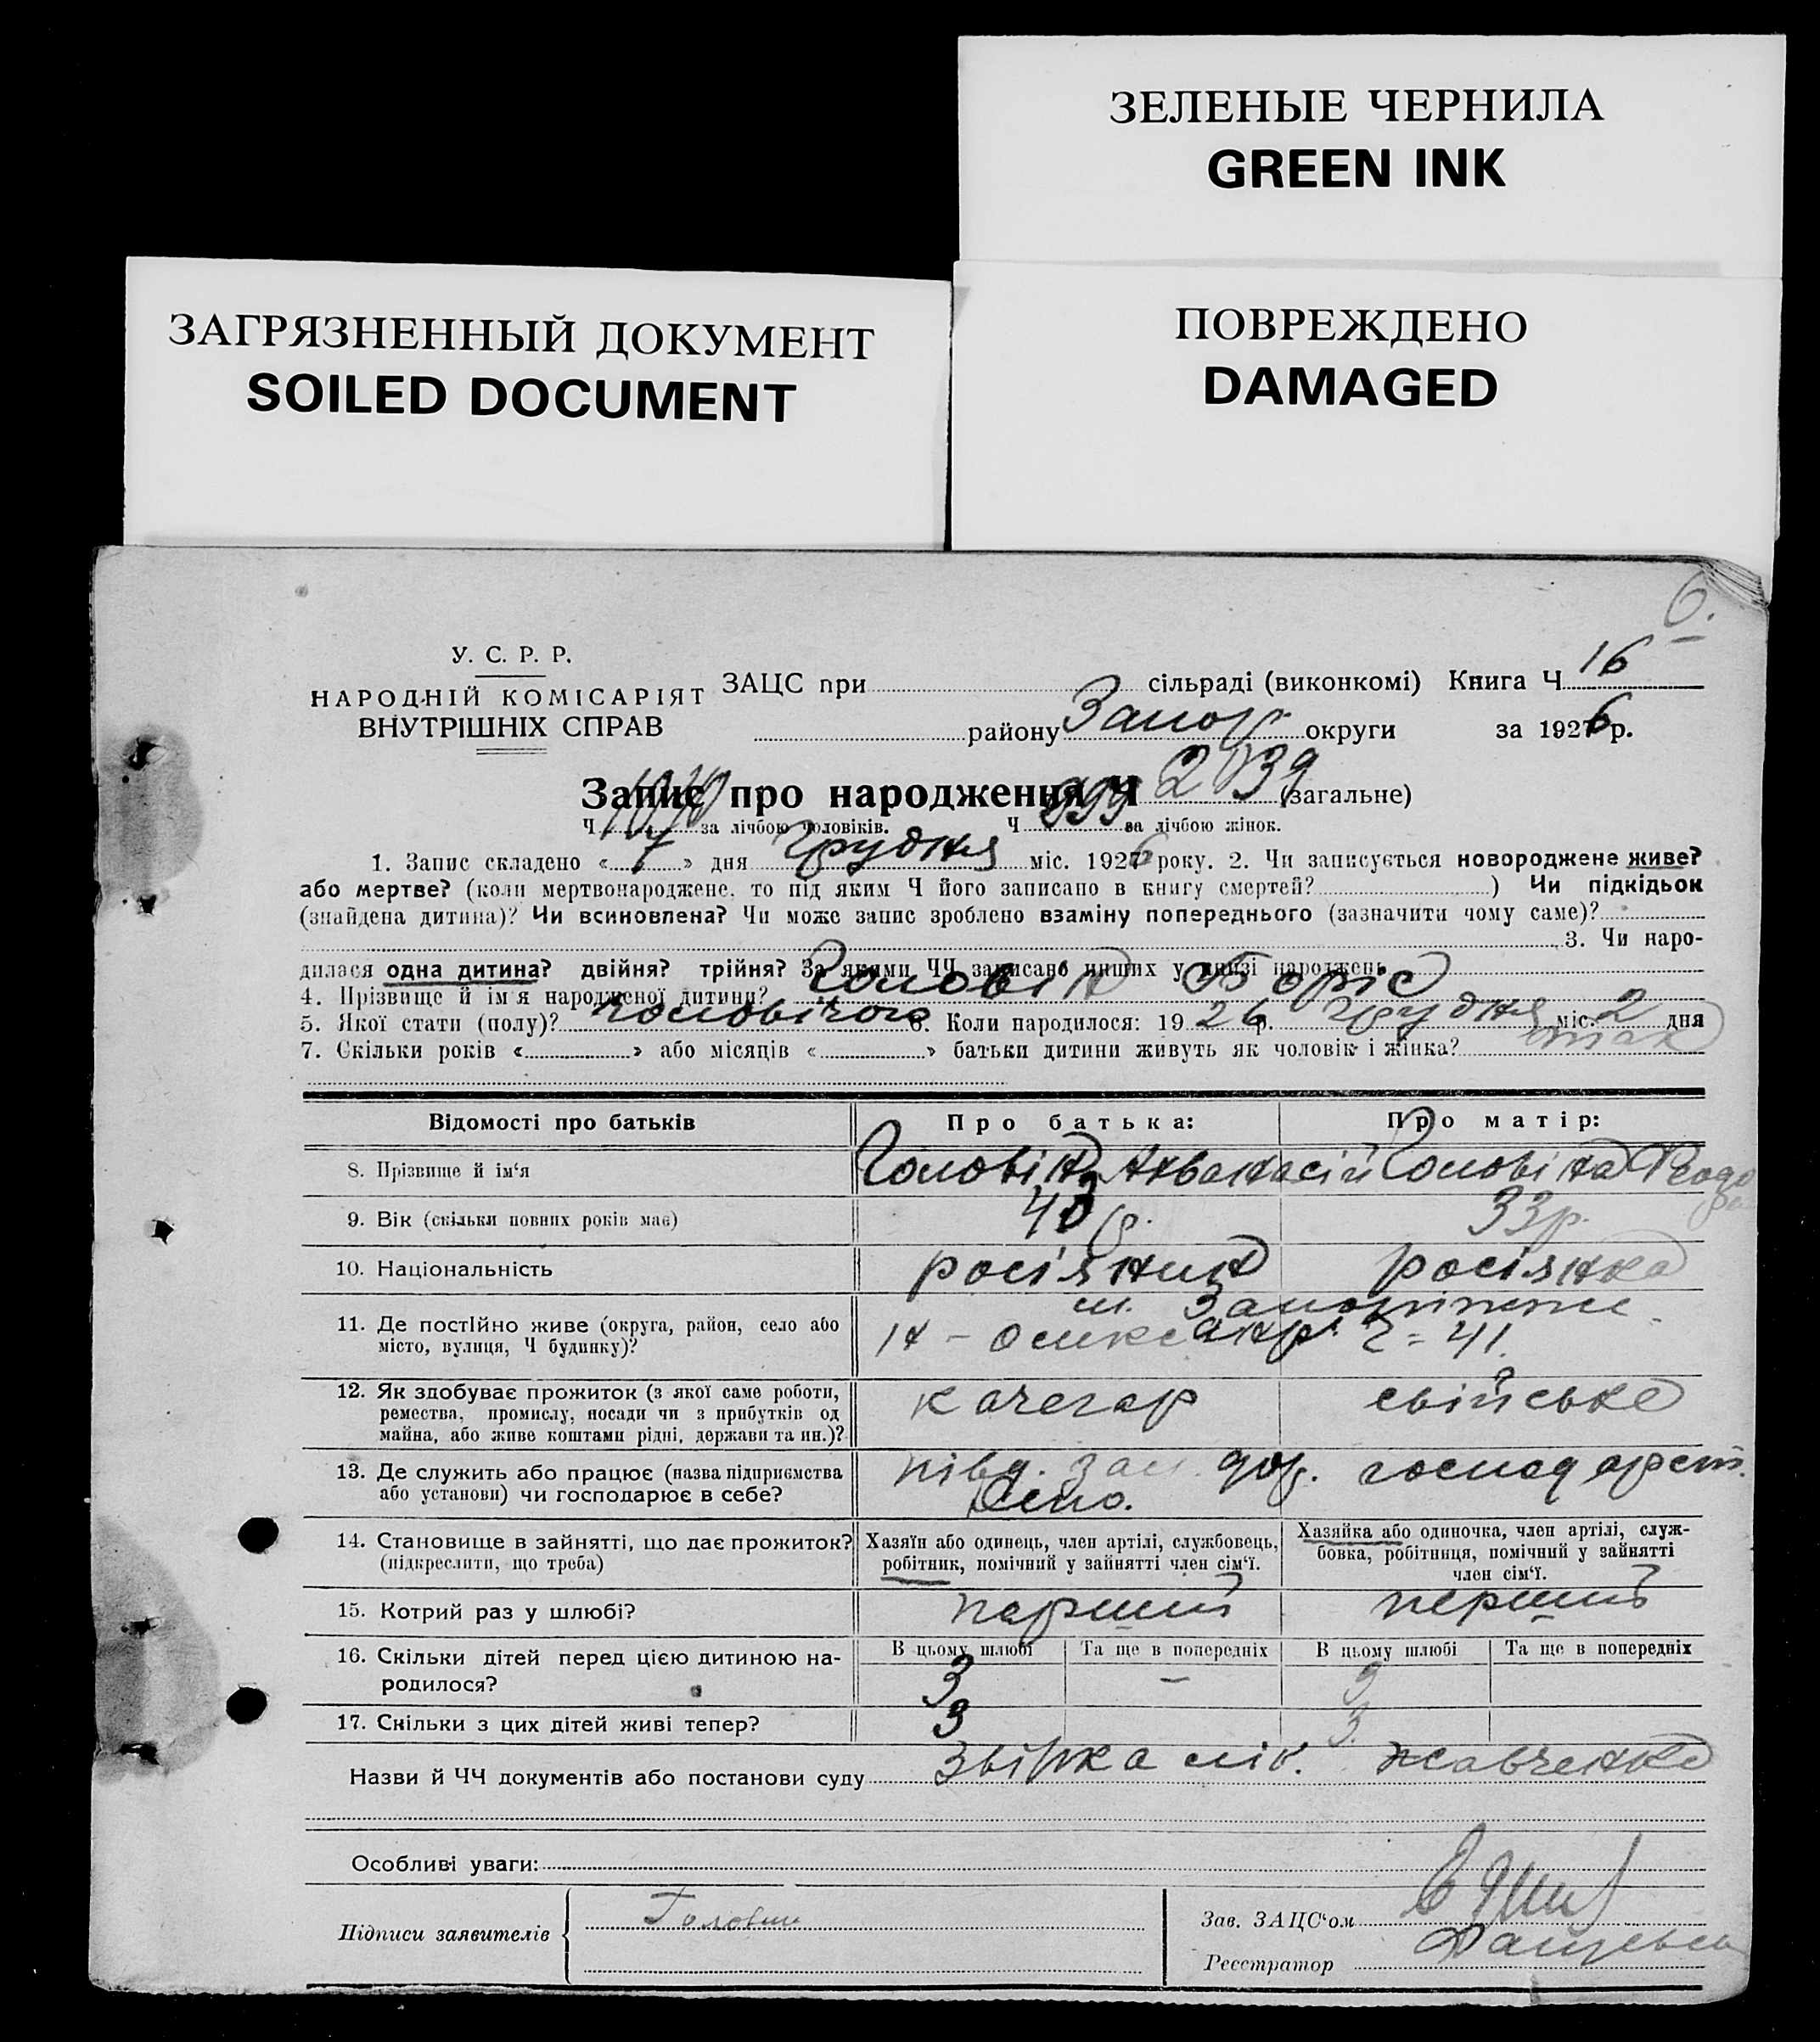 ЗЕЛЕНЫЕ ЧЕРНИЛА
GREEN INK
ЗАГРЯЗНЕННЫЙ ДОКУМЕНТ
SOILED DOCUMENT
ПОВРЕЖДЕНО
DAMAGED
6.
У. С. Р. Р.
НАРОДНІЙ КОМІСАРІЯТ
ВНУТРІШНІХ СПРАВ
ЗАЦС при сільраді (виконкомі) Книга Ч 16
району Запор. округи за 1926 р.
Запис про народження Ч 2039 (загальне)
Ч 1040 за лічбою чоловіків. Ч 999 за лічбою жінок.
1. Запис складено « 7 » дня грудня міс. 1926 року. 2. Чи записується новороджене живе?
або мертве? (коли мертвонароджене, то під яким Ч його записано в книгу смертей? ) Чи підкідьок
(знайдена дитина)? Чи всиновлена? Чи може запис зроблено взаміну попереднього (зазначити чому саме)?
3. Чи наро-
дилася одна дитина? двійня? трійня? За якими ЧЧ записано инших у книзі народжень
4. Прізвище й ім'я народженої дитини? Головін Боріс
5. Якої стати (полу)? чоловічого 6. Коли народилося: 19 26 р. грудня міс. 2 дня
7. Скільки років « » або місяців « » батьки дитини живуть як чоловік і жінка? так
Відомості про батьків Про батька: Про матір:
8. Прізвище й ім'я Головін Афанасій Головіна Теодора
9. Вік (скільки повних років має) 43 р. 33 р.
10. Національність росіянин росіянка
11. Де постійно живе (округа, район, село або місто, вулиця, Ч будинку)? м. Запоріжжє
н-олександр. 2 = 41.
12. Як здобуває прожиток (з якої саме роботи, ремества, промислу, посади чи з прибутків од майна, або живе коштами рідні, держави та ин.)? качегар свійське
13. Де служить або працює (назва підприємства або установи) чи господарює в себе? півд. зал. дор. господарст.
Депо.
14. Становище в зайнятті, що дає прожиток? (підкреслити, що треба) Хазяїн або одинець, член артілі, службовець, робітник, помічний у зайнятті член сім'ї. Хазяйка або одиночка, член артілі, служ-бовка, робітниця, помічний у зайнятті член сім'ї.
15. Котрий раз у шлюбі? перший перший
16. Скільки дітей перед цією дитиною на-родилося? В цьому шлюбі Та ще в попередніх В цьому шлюбі Та ще в попередніх
3 – 3
17. Скільки з цих дітей живі тепер? 3 3.
Назви й ЧЧ документів або постанови суду Звірка лік. Жавченко
Особливі уваги:
Підписи заявителів Головин
Зав. ЗАЦС'ом
Реєстратор